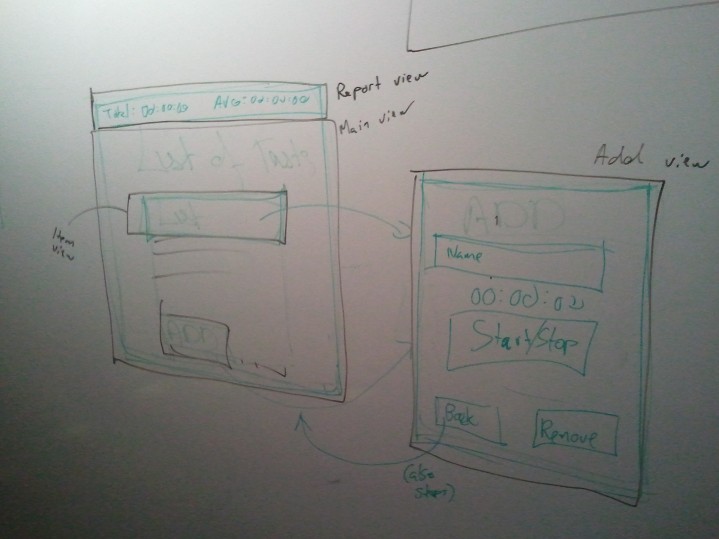 Report view
Total: 00:00:00 AVG: 00:00:00
Main view
Item
view
ADD
Add view
ADD
Name
00:00:00
Start/Stop
Back
Remove
(also
stops)